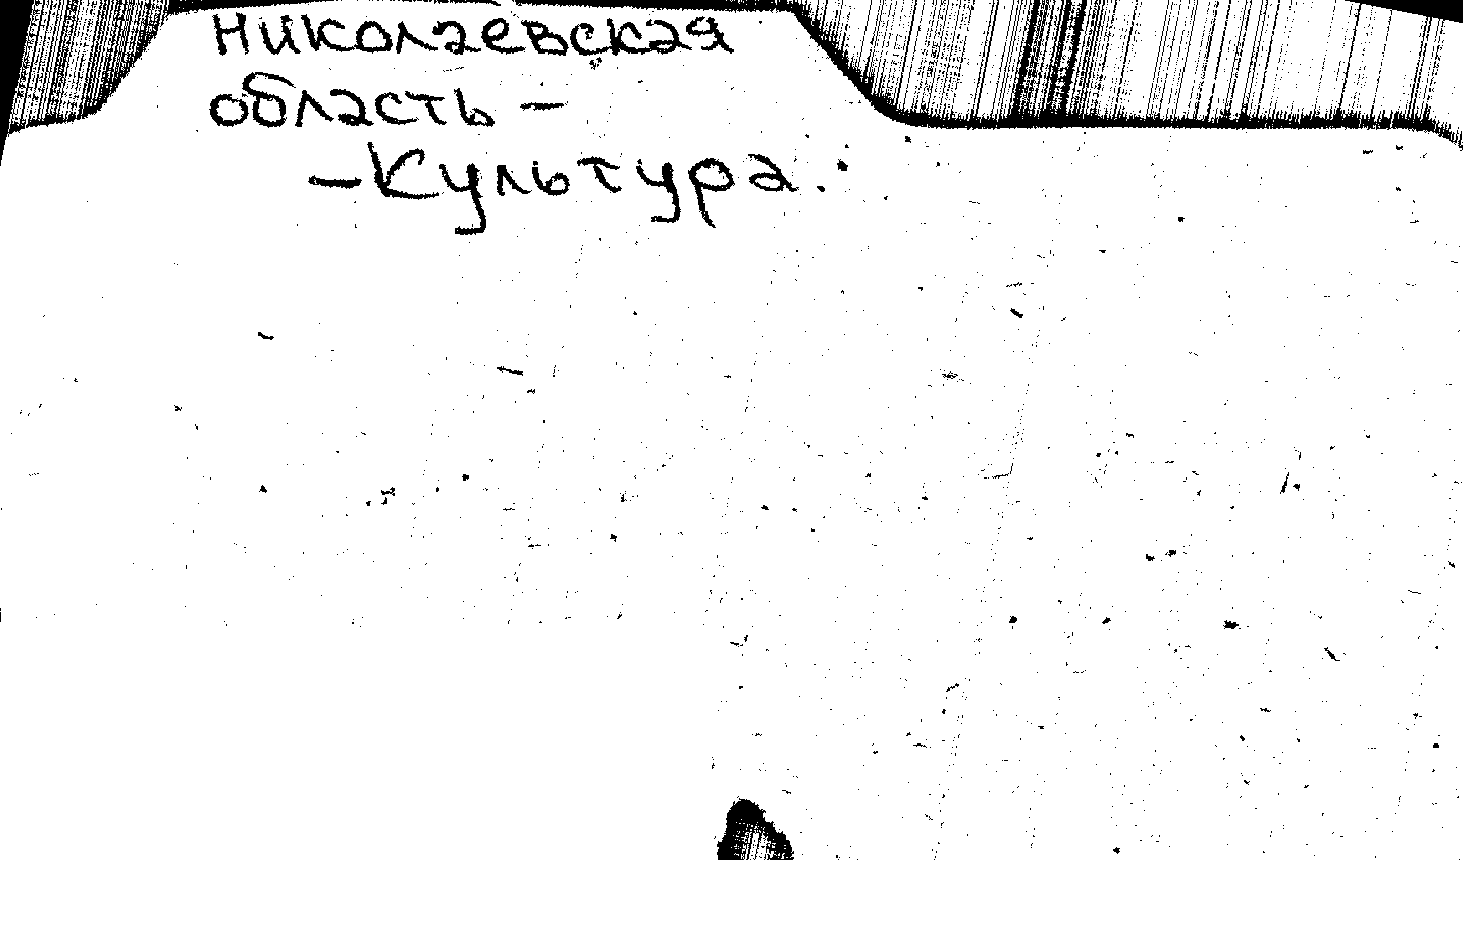 Николаевская
область -
- Культура.